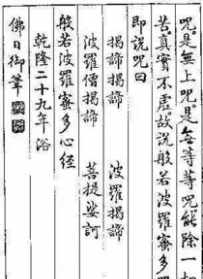 咒是無上咒是無等等咒能除一切
苦真實不虛故說般若波羅蜜多
即說咒曰
揭諦揭諦 波羅揭諦
波羅僧揭諦 菩提娑訶
般若波羅蜜多心經
乾隆二十九年浴
佛日御筆